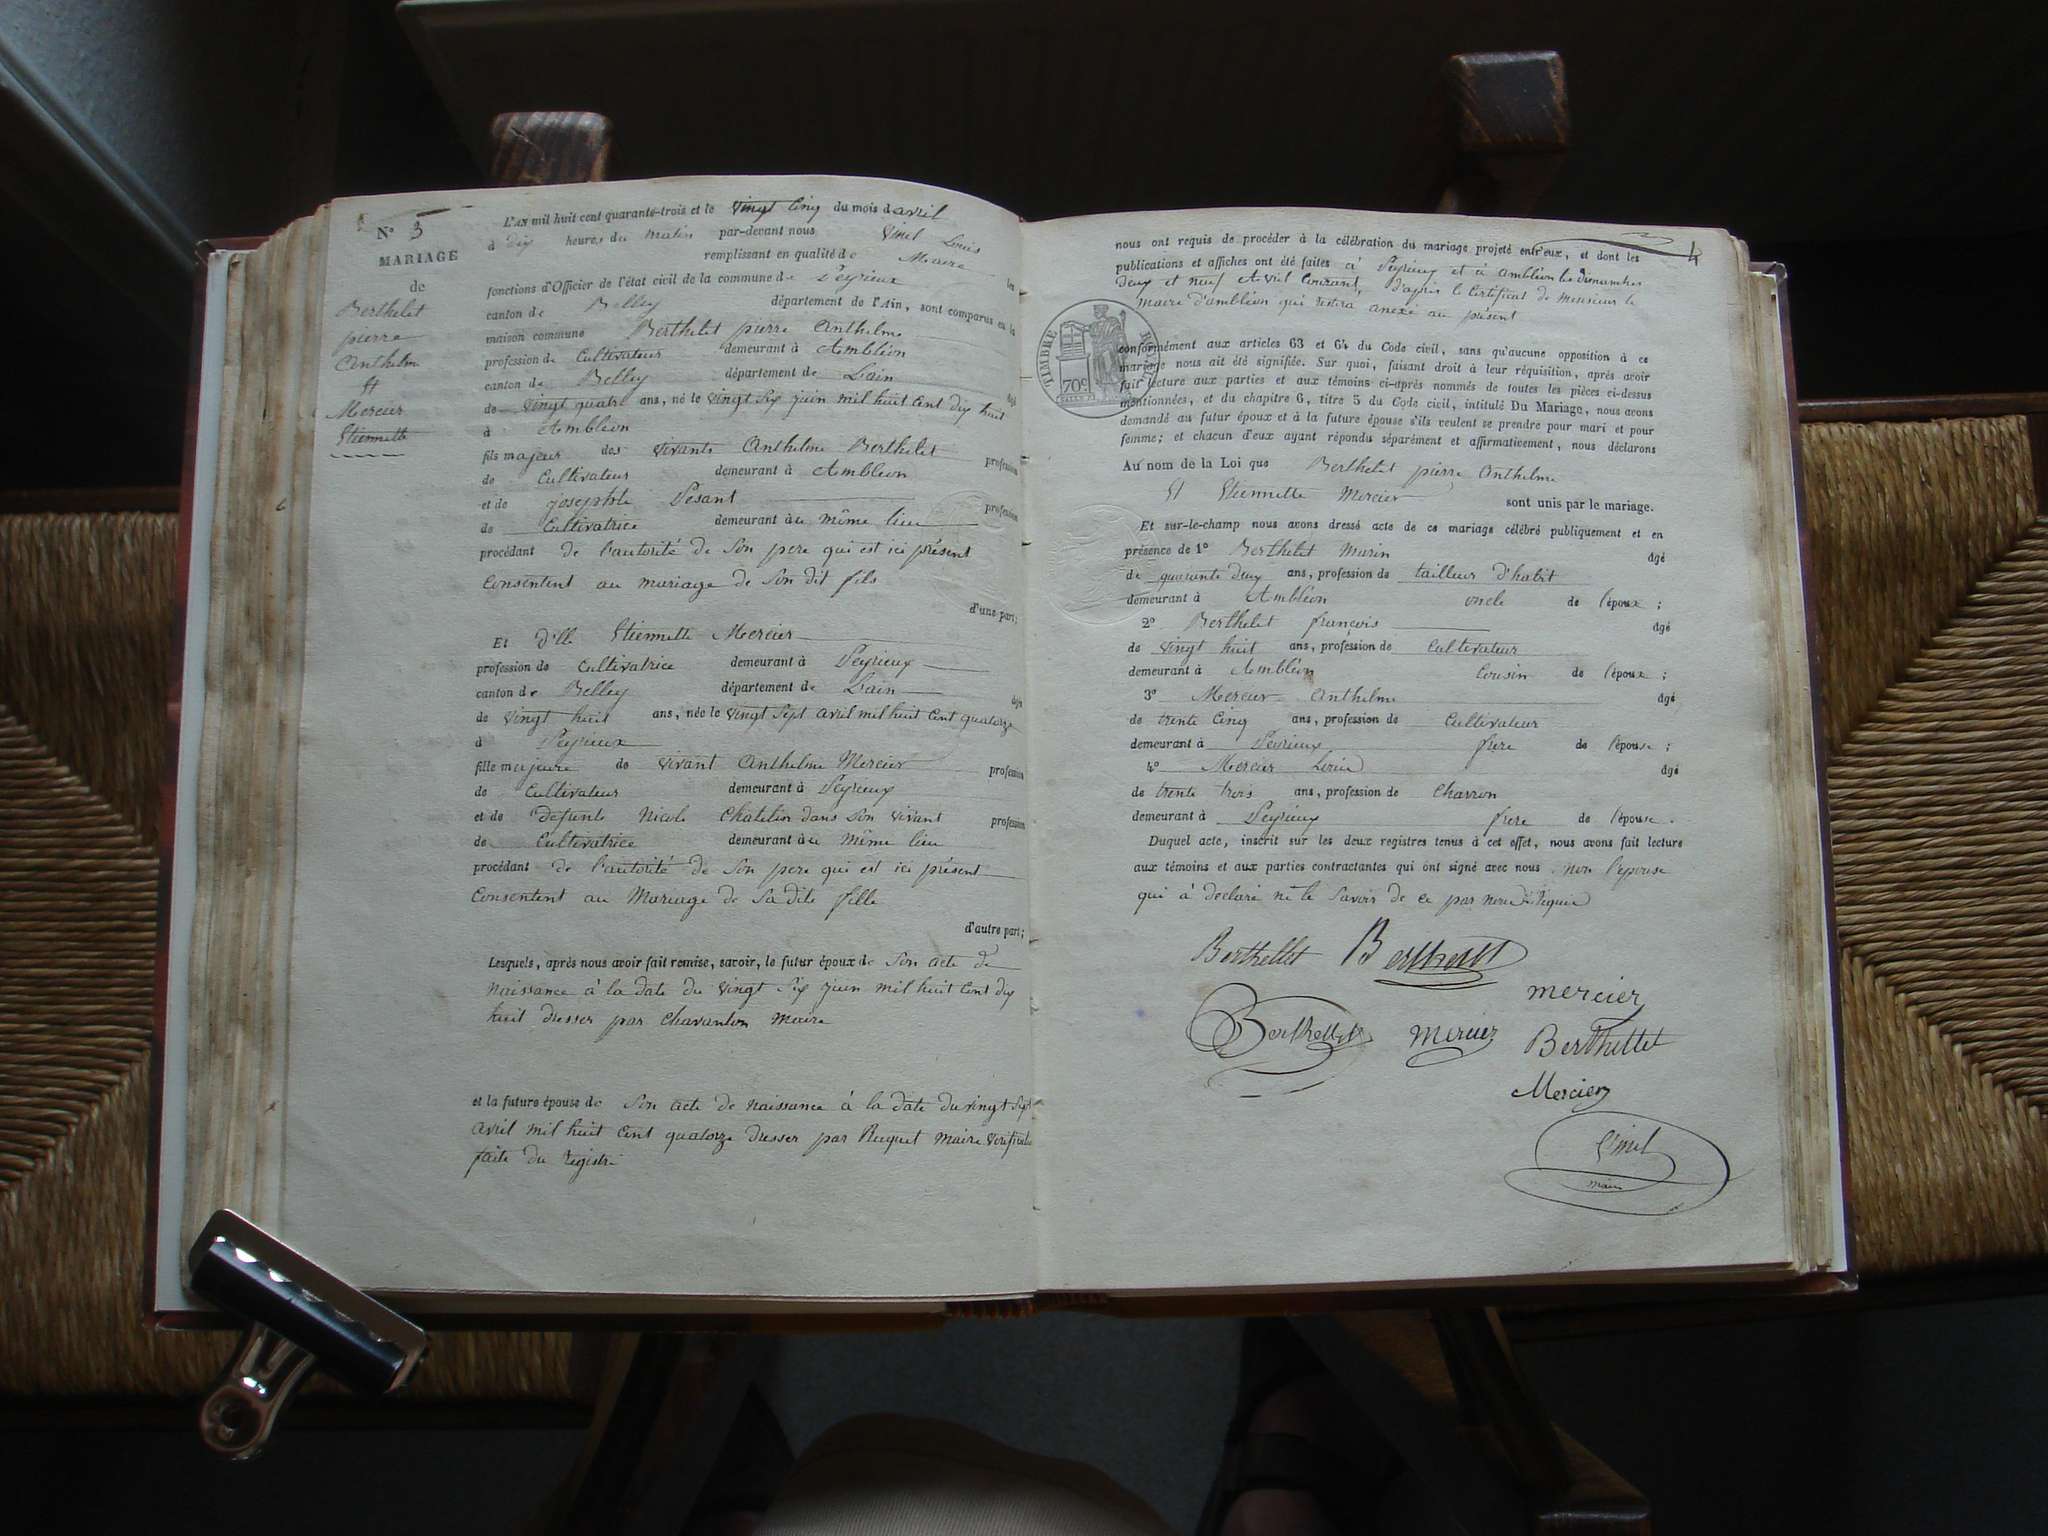 N° 3
MARIAGE
de
Berthelet
pierre
Anthelm
et
Mercier
Etiennette
L'AN mil huit cent quarante-trois et le vingt Cinq du mois d avril
à dix heures du matin par-devant nous Vinel Louis
remplissant en qualité de Maire les
fonctions d'Officier de l'état civil de la commune de Peyrieux
canton de Belley département de l'Ain, sont comparus en la
maison commune Berthelet pierre Anthelme
profession de Cultivateur demeurant à Ambléon
canton de Belley département de Lain âgé
de vingt quatre ans, né le vingt Six juin mil huit Cent dix huit
à Ambléon
fils majeur des vivants Anthelme Berthelet profession
de Cultivateur demeurant à Ambléon
et de josephte Pesant profession
de Cultivatrice demeurant au même lieu
procédant de l'autorité de Son pere qui est ici présent
Consentent au mariage de Son dit fils
d'une part;
Et d'lle Etiennette Mercier
profession de Cultivatrice demeurant à Peyrieux
canton de Belley département de Lain âgée
de vingt huit ans, née le vingt Sept avril mil huit Cent quatorze
à Peyrieux
fille majeure de vivant Anthelme Mercier profession
de Cultivateur demeurant à Peyrieux
et de Defunte Nicole Chatelion dans Son vivant profession
de Cultivatrice demeurant au même lieu
procédant de l'autorité de Son pere qui est ici présent
Consentent au Mariage de Sa dite fille
d'autre part;
Lesquels, après nous avoir fait remise, savoir, le futur époux de Son acte de
naissance à la date du vingt Six juin mil huit Cent dix
huit dresser par Chavanton Maire
et la future épouse de Son acte de naissance à la date du vingt Sept
avril mil huit Cent quatorze dresser par Ruquet maire
faite du registre
4
nous ont requis de procéder à la célébration du mariage projeté entr'eux, et dont les
publications et affiches ont été faites à Peyrieux et à Ambléon les dimanches
deux et neuf Avril Courant, d'après le Certificat de Monsieur le
maire d'ambléon qui restera anexé au présent
TIMBRE ROYAL
70c
conformément aux articles 63 et 64 du Code civil, sans qu'aucune opposition à ce
mariage nous ait été signifiée. Sur quoi, faisant droit à leur réquisition, après avoir
fait lecture aux parties et aux témoins ci-après nommés de toutes les pièces ci-dessus
mentionnées, et du chapitre 6, titre 5 du Code civil, intitulé Du Mariage, nous avons
demandé au futur époux et à la future épouse s'ils veulent se prendre pour mari et pour
femme; et chacun d'eux ayant répondu séparément et affirmativement, nous déclarons
Au nom de la Loi que Berthelet pierre Anthelme
Et Etiennette Mercier sont unis par le mariage.
Et sur-le-champ nous avons dressé acte de ce mariage célébré publiquement et en
présence de 1° Berthelet Marin âgé
de quarante deux ans, profession de tailleur d'habit
demeurant à Ambléon oncle de l'époux;
2° Berthelet françois âgé
de vingt huit ans, profession de Cultivateur
demeurant à Ambléon Cousin de l'époux;
3° Mercier Anthelme âgé
de trente Cinq ans, profession de Cultivateur
demeurant à Peyrieux frere de l'épouse;
4° Mercier Louis âgé
de trente trois ans, profession de Charron
demeurant à Peyrieux frere de l'épouse.
Duquel acte, inscrit sur les deux registres tenus à cet effet, nous avons fait lecture
aux témoins et aux parties contractantes qui ont signé avec nous non l'epouse
qui à declaré ne le Savoir de ce par nous
Berthellet Berthellet
mercier
Berthellet mercier Berthellet
Mercier
Vinel
maire